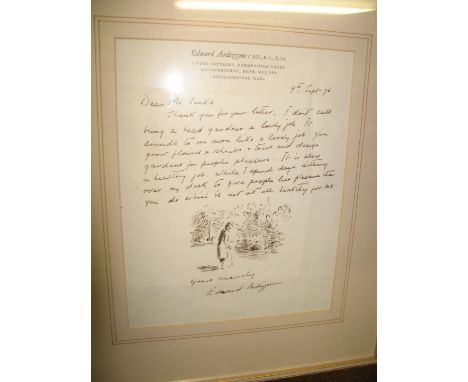 Edward Ardizzone C.B.E., R.A., R.D.I.
5 VINE COTTAGES, RODMERSHAM GREEN
SITTINGBOURNE, KENT, ME9
SITTINGBOURNE
9th Sept. 76
Dear Mr
Thank you for your letter. I don't call
being a head gardener a lowly job. It
sounds to me more like a lovely job. You
grow flowers & shrubs & trees and design
gardens for peoples pleasure. It is also
a healthy job while I spend days sitting
over my desk to give people less pleasure than
you do which is not at all healthy for me
Yours sincerely
Edward Ardizzone